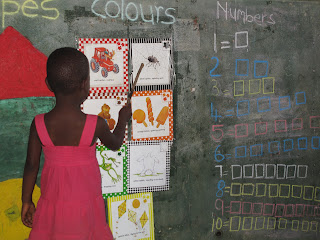 pes Colours Numbers
1=□
2=□□
3=□□□
4=□□□□
5=□□□□□
6=□□□□□□
7=□□□□□□□
8=□□□□□□□□
9=□□□□□□□□□
10=□□□□□□□□□□